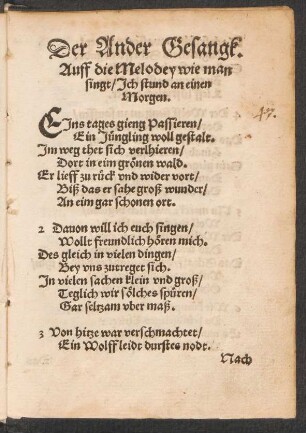 Der Ander Gesangk.
Auff die Melodey wie man
singt/Ich stund an einen
Morgen.
17.
EIns tages gieng Passieren/
Ein Jüngling woll gestalt.
Im weg thet sich verlhieren/
Dort in eim grönen wald.
Er lieff zu rück vnd wider vort/
Biß das er sahe groß wunder/
An eim gar schonen ort.
2 Dauon will ich euch singen/
Wollt freundlich hören mich.
Des gleich in vielen dingen/
Bey vns zutreget sich.
In vielen sachen klein vnd groß/
Teglich wir sölches spüren/
Gar seltzam vber maß.
3 Von hitze war verschmachtet/
Ein Wolff leidt durstes nodt.
Nach